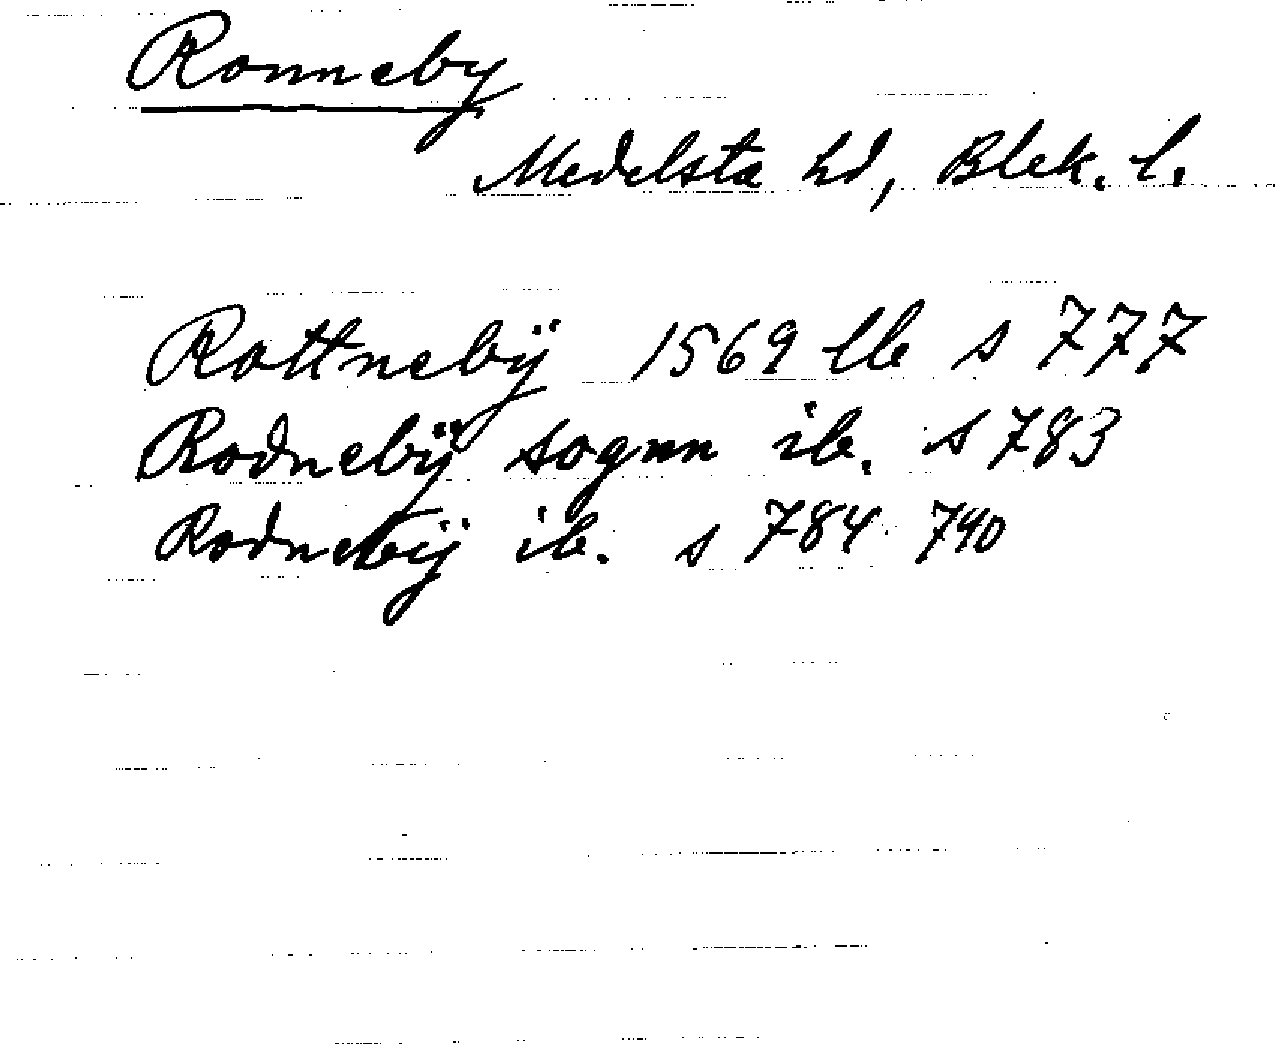 Ronneby
Medelsta hd, Blek. l.
Rottnebÿ 1569 llb s 777
Rodnebÿ sognn ib. s 783
Rodnebÿ ib. s 784 790